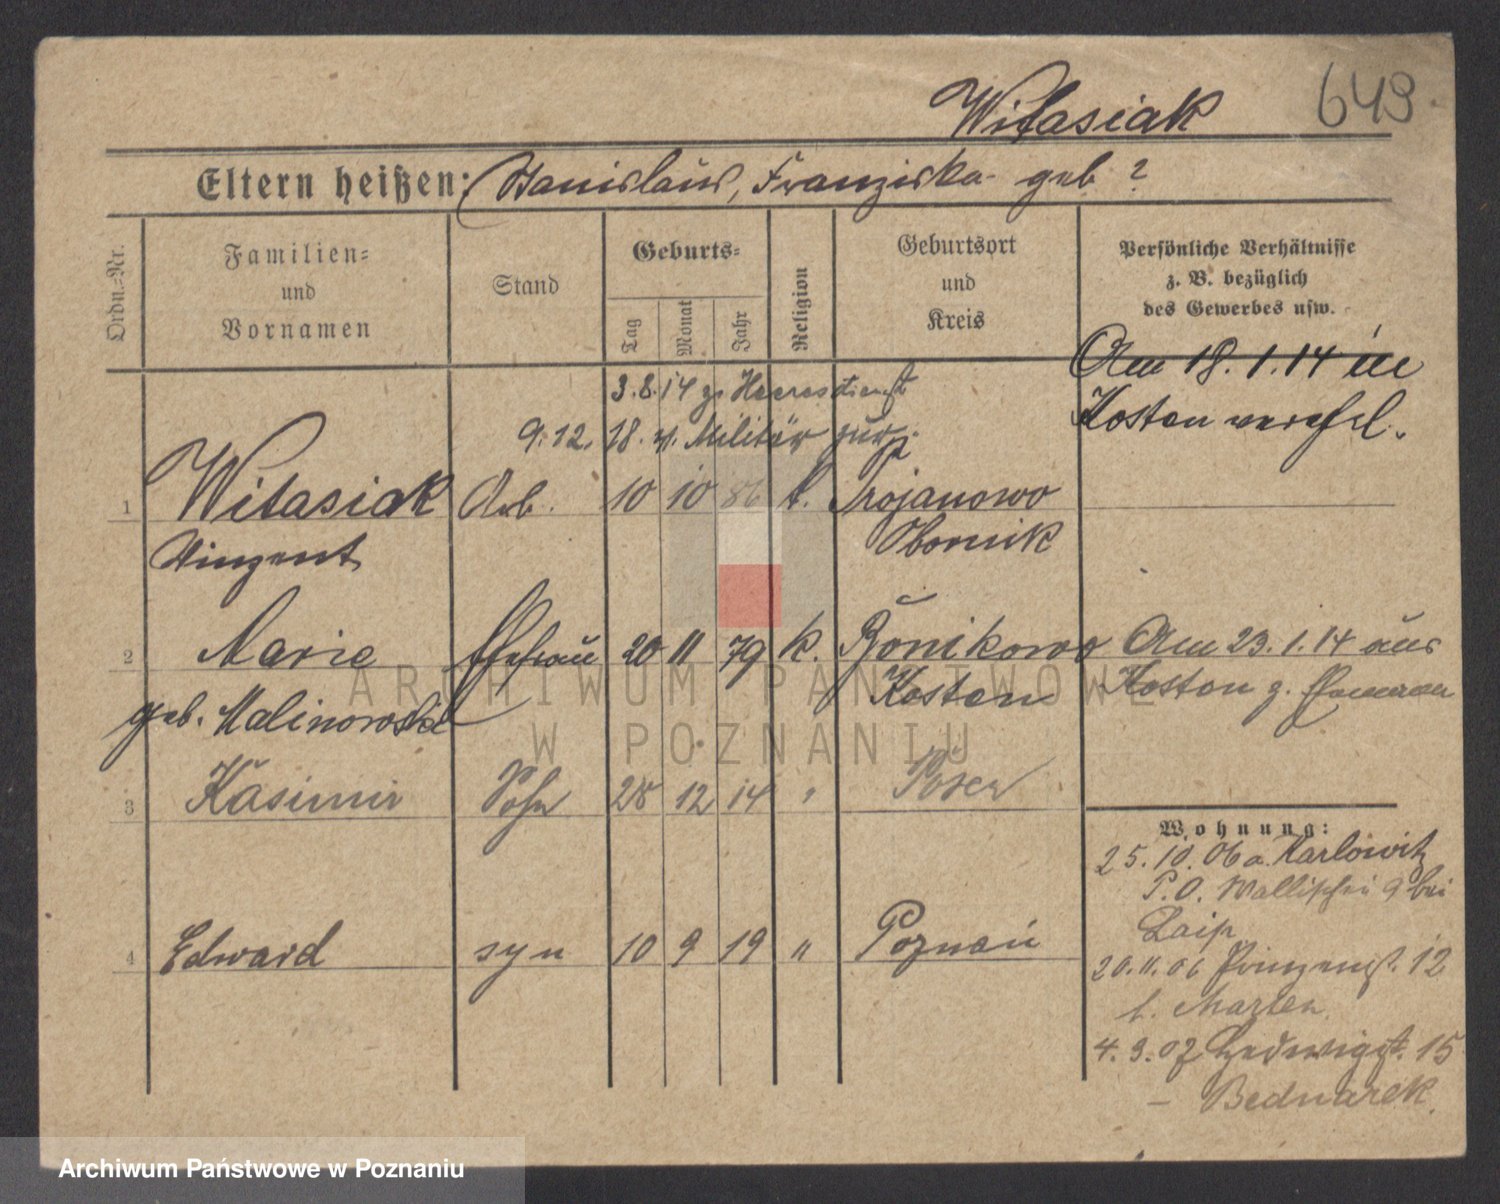 Witasiak 649
Eltern heißen: Stanislaus, Franziska geb ?
Ordn.-Nr.
Familien-
und
Vornamen
Stand
Geburts-
Tag
Monat
Jahr
Religion
Geburtsort
und
Kreis
Persönliche Verhältnisse
z. B. bezüglich
des Gewerbes usw.
Am 18.1.14 in
Kosten verehel.
3.8.14 z. Heeresdienst
9.12.18. v. Militär zur.
1 Witasiak Arb. 10 10 86 k. Trojanowo
Vinzent Obornik
2 Marie Ehefrau 20 11 79 k. Bonikowo Am 23.1.14 aus
geb. Malinowska Kosten Kosten z. Ehemann
3 Kasimir Sohn 28 12 14 " Posen
4 Edward syn 10 9 19 " Poznań
Wohnung:
25.10.06 a. Karlowitz
P.O. Wallischei 9 bei
20.11.06 Prinzenst. 12
4.9.07 Hedwigst. 15
– Bednarek.
ARCHIWUM PAŃSTWOWE
W POZNANIU
Archiwum Państwowe w Poznaniu